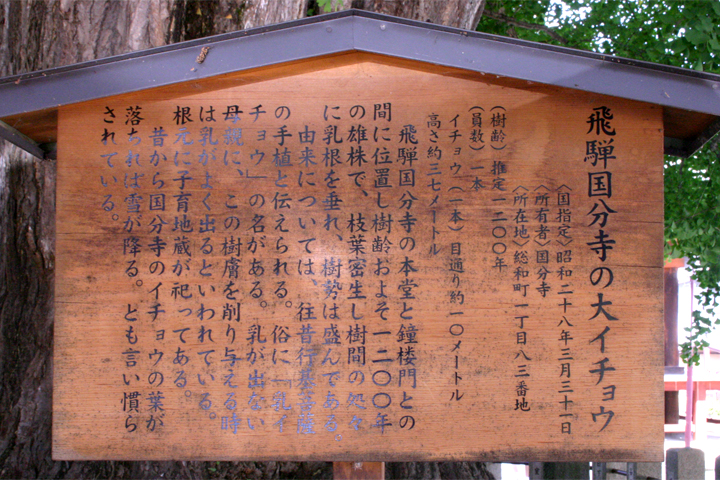 飛騨国分寺の大イチョウ
〈国指定〉昭和二十八年三月三十一日
〈所有者〉国分寺
〈所在地〉総和町一丁目八三番地
(樹齢)推定一二〇〇年
(員数)一本
イチョウ(一本)目通り約一〇メートル
高さ約三七メートル
飛騨国分寺の本堂と鐘楼門との
間に位置し樹齢およそ一二〇〇年
の雄株で、枝葉密生し樹間の処々
に乳根を垂れ、樹勢は盛んである。
由来については、往昔行基菩薩
の手植と伝えられる。俗に「乳イ
チョウ」の名がある。乳が出ない
母親に、この樹膚を削り与える時
は乳がよく出るといわれている。
根元に子育地蔵が祀ってある。
昔から国分寺のイチョウの葉が
落ちれば雪が降る。とも言い慣ら
されている。